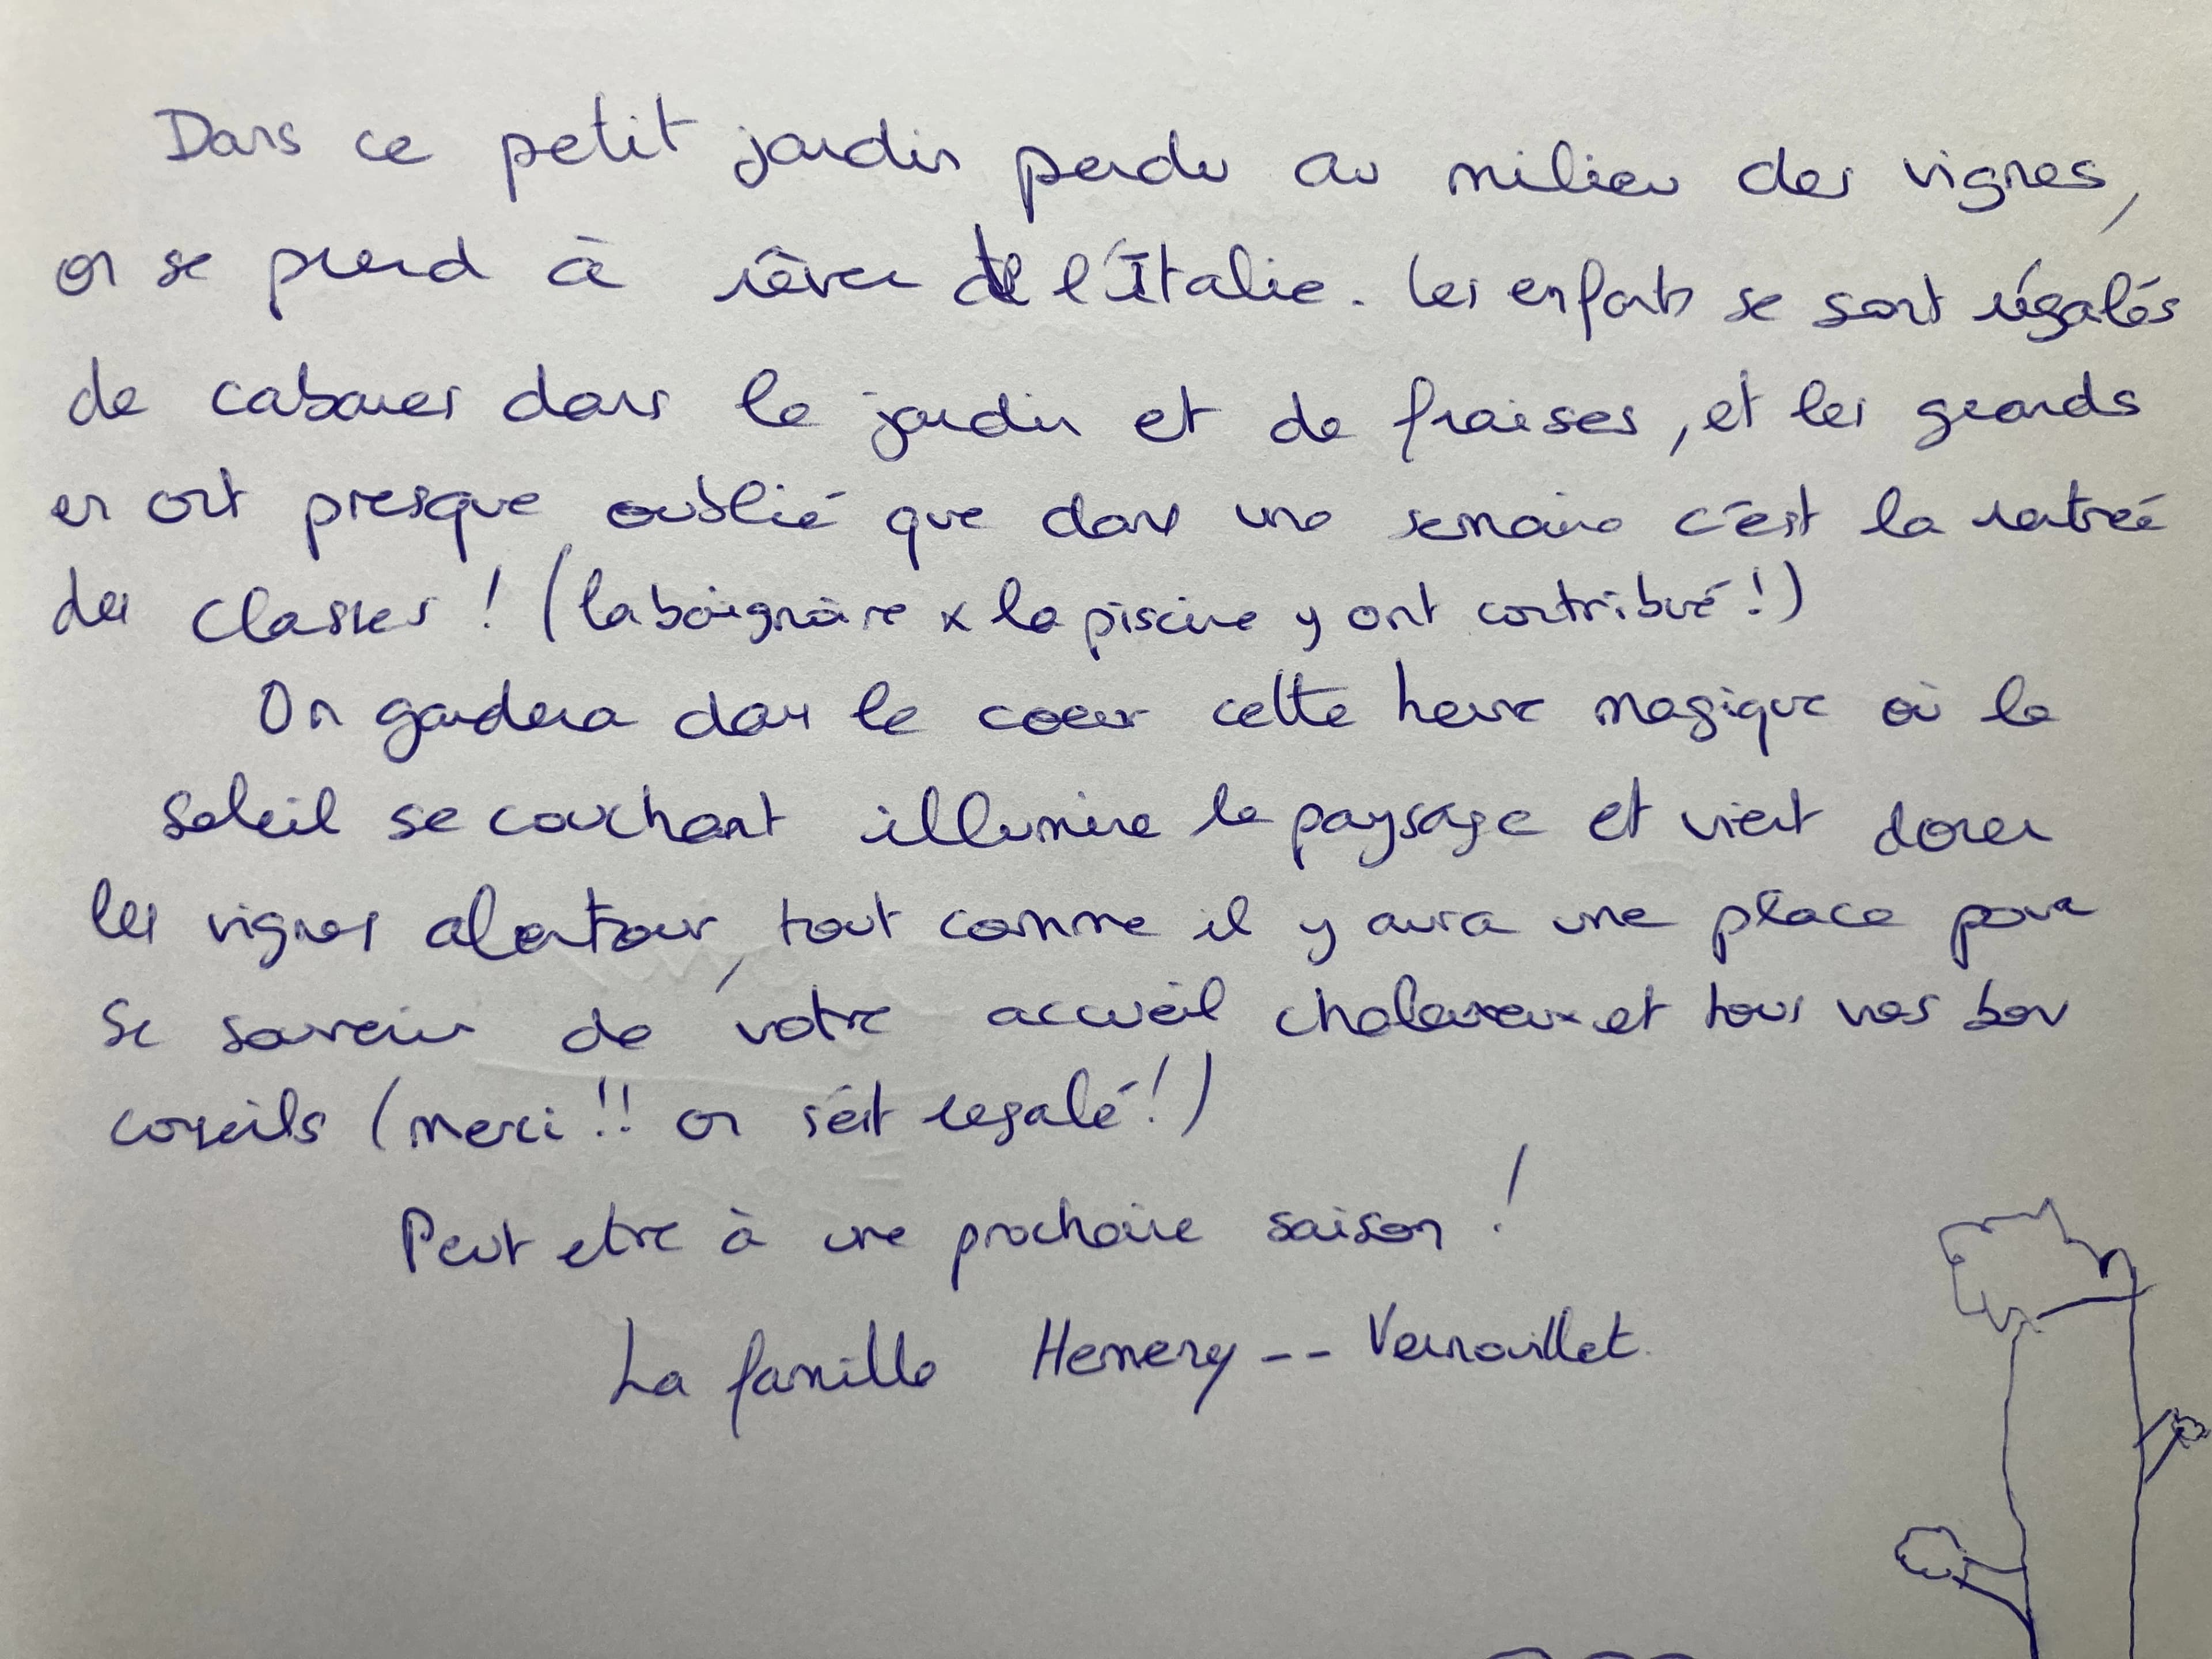 Dans ce petit jardin perdu au milieu des vignes,
on se prend à rêver de l'Italie. Les enfants se sont régalés
de cabanes dans le jardin et de fraises, et les grands
en ont presque oublié que dans une semaine c'est la rentrée
des classes ! (la baignoire x la piscine y ont contribué !)
On gardera dans le coeur cette heure magique où le
soleil se couchant illumine le paysage et vient dorer
les vignes alentour, tout comme il y aura une place pour
se souvenir de votre accueil chaleureux et tous vos bons
conseils (merci !! on s'est régalé !)
Peut etre à une prochaine saison !
La famille Hemery -- Vernouillet